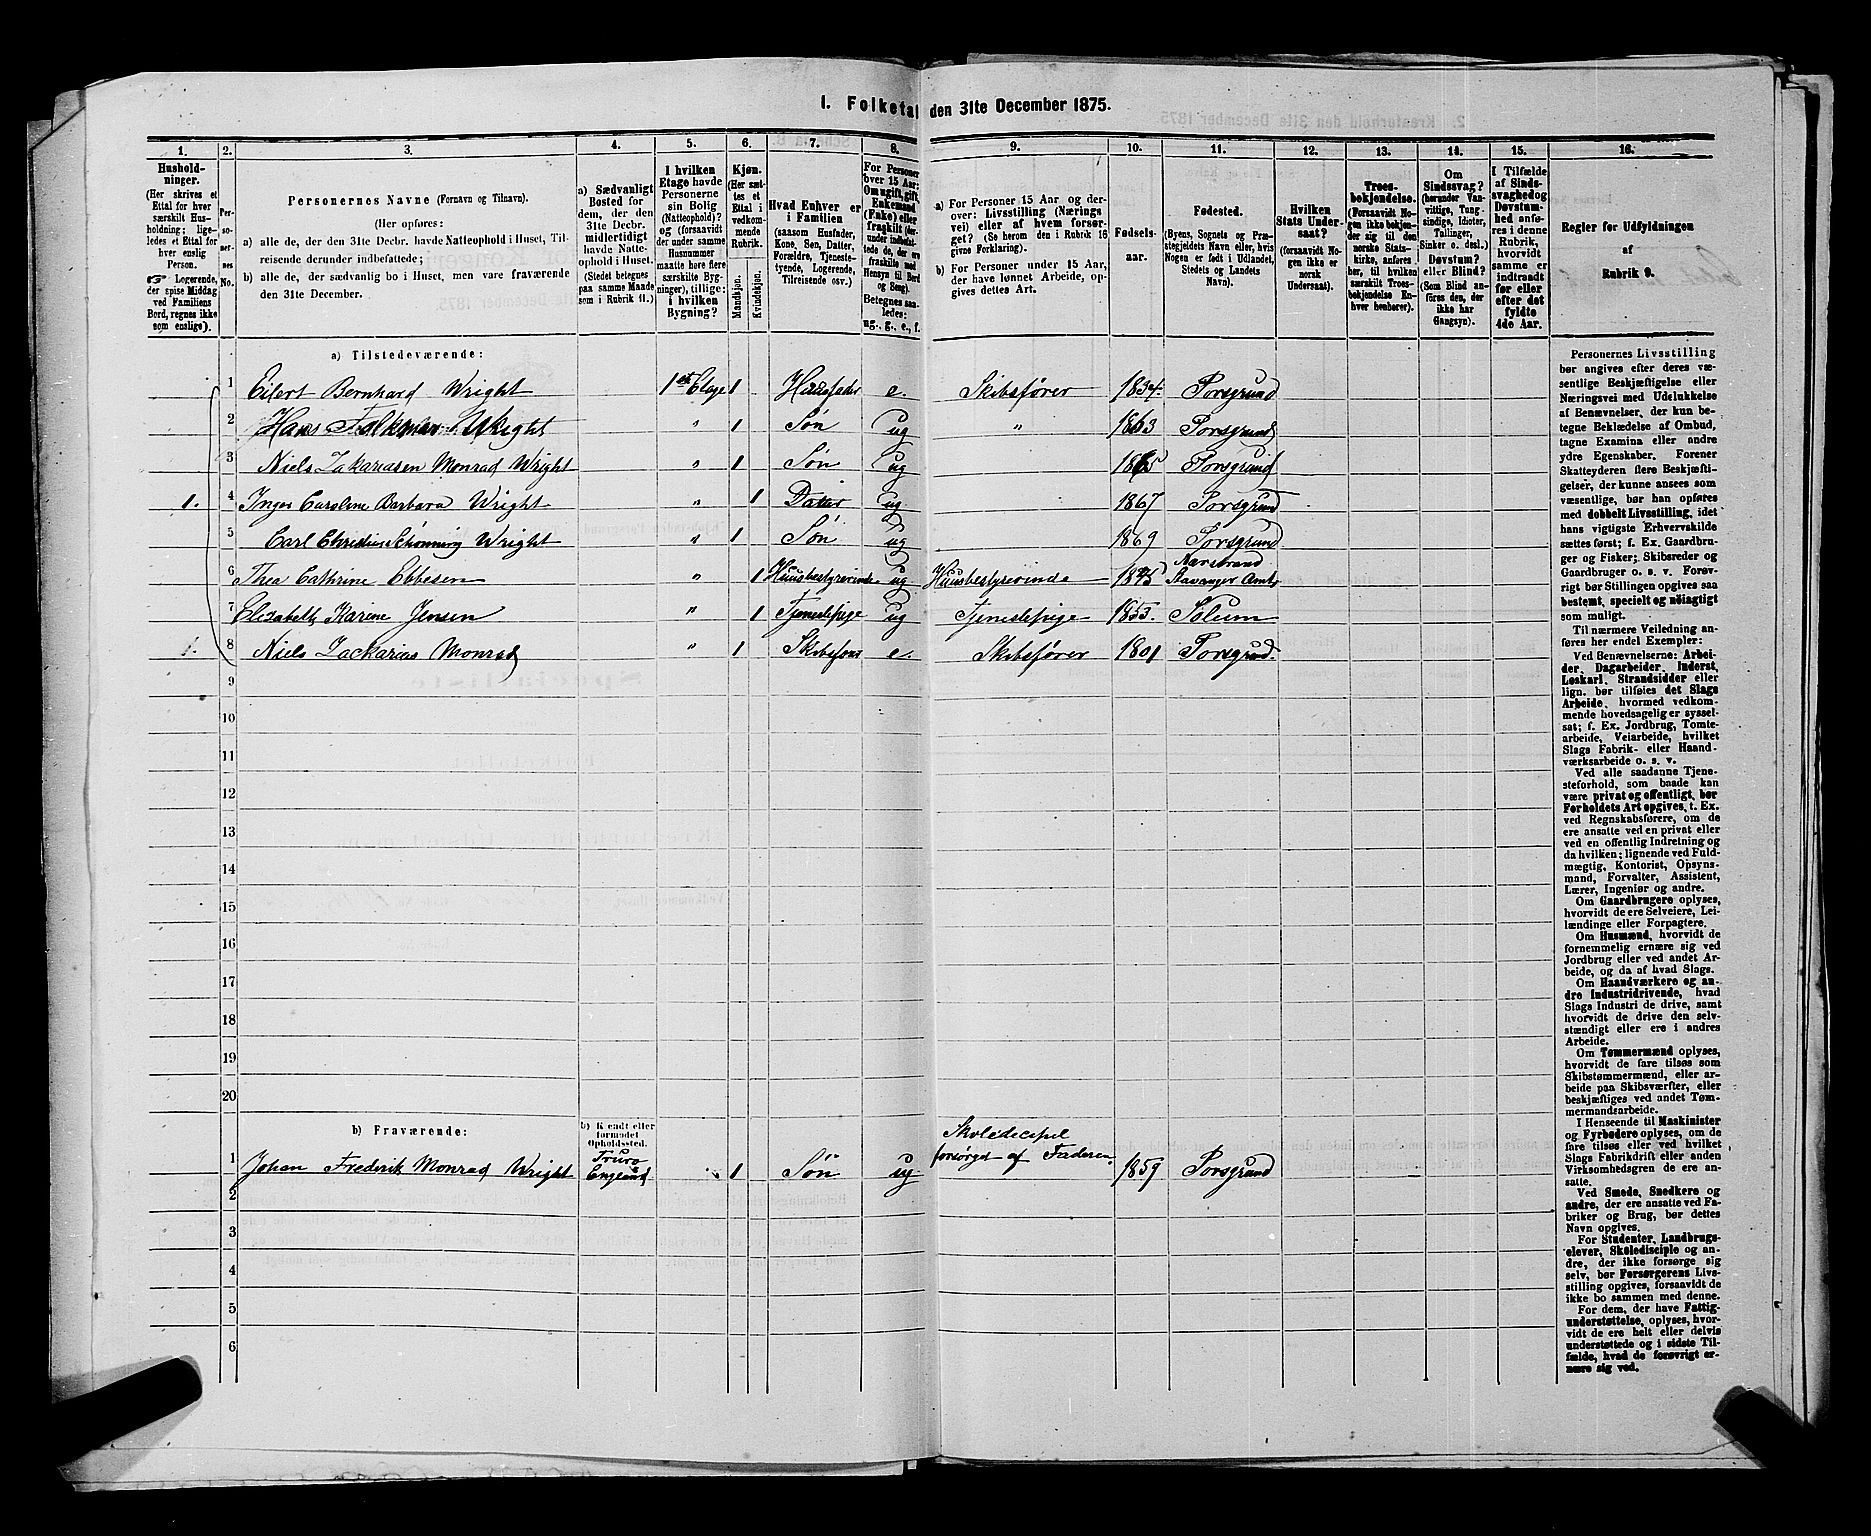 1. Folketal den 31te December 1875.
1. 2. 3. 4. 5. 6. 7. 8. 9. 10. 11. 12. 13. 14. 15. 16.
Hushold-
ninger.
(Her skrives et
Ettal for hver
særskilt Hus-
holdning; lige-
ledes et Ettal for
hver enslig
Person.
☞ Logerende,
der spise Middag
ved Familiens
Bord, regnes ikke
som enslige).
Per-
so-
ner-
nes
No.
Personernes Navne (Fornavn og Tilnavn).
(Her opføres:
a) alle de, der den 31te Decbr. havde Natteophold i Huset, Til-
reisende derunder indbefattede;
b) alle de, der sædvanlig bo i Huset, men vare fraværende
den 31te December.
a) Sædvanligt
Bosted for
dem, der den
31te Decbr.
midlertidigt
havde Natte-
ophold i Huset.
(Stedet betegnes
paa samme Maade
som i Rubrik 11.)
I hvilken
Etage havde
Personerne
sin Bolig
(Natteophold)?
og (forsaavidt
der under samme
Husnummer
maatte høre flere
særskilte Byg-
ninger), tillige:
i hvilken
Bygning?
Kjøn.
(Her sæt-
tes et
Ettal i
vedkom-
mende
Rubrik.
Mandkjøn.
Kvindekjøn.
Hvad Enhver er
i Familien
(saasom Husfader,
Kone, Søn, Datter,
Forældre, Tjeneste-
tyende, Logerende,
Tilreisende osv.)
For Personer
over 15 Aar:
Om ugift, gift,
Enkemand
(Enke) eller
fraskilt
Betegnes saa-
ledes:
ug., g., e., f.
a) For Personer 15 Aar og der-
over: Livsstilling (Nærings-
vei) eller af hvem forsør-
get? (Se herom den i Rubrik 16
givne Forklaring).
b) For Personer under 15 Aar,
der have lønnet Arbeide, op-
gives dettes Art.
Fødsels-
aar.
Fødested.
(Byens, Sognets og Præ-
stegjeldets Navn eller, hvis
Nogen er født i Udlandet,
Stedets og Landets
Navn).
Hvilken
Stats Under-
saat?
(forsaavidt No-
gen ikke er
norsk
Undersaat).
Troes-
bekjendelse.
(Forsaavidt No-
gen ikke bekjen-
der sig til den
norske Stats-
kirke, anføres
her, til hvilken
særskilt Troes-
bekjendelse En-
hver henhører).
Om
Sindssvag?
(herunder Van-
vittige, Tung-
sindige, Idioter,
Tullinger,
Sinker o. desl.)
Døvstum?
eller Blind?
(Som Blind an-
føres den, der
ikke har
Gangsyn).
I Tilfælde
af Sinds-
svaghed og
Døvstum-
hed anfø-
res i denne
Rubrik,
hvorvidt
samme er
indtraadt
før eller
efter det
fyldte
4de Aar.
Regler for Udfyldningen
af
Rubrik 9.
a) Tilstedeværende:
1 Eilert Bernhard Wright 1st Etage 1 Huusfader e. Skibsfører 1834. Porsgrund
2 Hans Wright " 1 Søn ug " 1863 Porsgrund
3 Niels Zakariasen Monrad Wright " 1 Søn ug 1865 Porsgrund
1. 4 Inger Caroline Barbara Wright " 1 Datter ug 1867 Porsgrund
5 Carl Christian Schønning Wright " 1 Søn ug 1869 Porsgrund
6 Thea Cathrine Ebbesen " 1 Huusbestyrerinde ug Huusbestyrerinde Stavanger Amt
7 Elisabeth Karine Jensen " 1 Tjenestepige ug Tjenestepige 1853. Solum
1. 8 Niels Zackarias Monrad " 1 e. Skibsfører 1801 Porsgrund.
9
10
11
12
13
14
15
16
17
18
19
20
b) Fraværende:
b) Kjendt eller
formodet
Opholdssted.
1 Johan Frederik Monrad Wright Truro England 1 Søn ug Skoledecipel forsørget af Faderen 1859 Porsgrund
2
3
4
5
6
Personernes Livsstilling
bør angives efter deres væ-
sentlige Beskjæftigelse eller
Næringsvei med Udelukkelse
af Benævnelser, der kun be-
tegne Beklædelse af Ombud,
tagne Examina eller andre
ydre Egenskaber. Forener
Skatteyderen flere Beskjæfti-
gelser, der kunne ansees som
væsentlige, bør han opføres
med dobbelt Livsstilling, idet
hans vigtigste Erhvervskilde
sættes først; f. Ex. Gaardbru-
ger og Fisker; Skibsreder og
Gaardbruger o. s. v. Forøv-
rigt bør Stillingen opgives saa
bestemt, specielt og nøiagtigt
som muligt.
Til nærmere Veiledning an-
føres her endel Exempler:
Ved Benævnelserne: Arbei-
der, Dagarbeider, Inderst,
Løskarl, Strandsidder eller
lign. bør tilføies det Slags
Arbeide, hvormed vedkom-
mende hovedsagelig er syssel-
sat; f. Ex. Jordbrug, Tomte-
arbeide, Veiarbeide, hvilket
Slags Fabrik- eller Haand-
værksarbeide o. s. v.
Ved alle saadanne Tjene-
steforhold, som baade kan
være privat og offentligt, bør
Forholdets Art opgives, t. Ex.
ved Regnskabsførere, om de
ere ansatte ved en privat eller
ved en offentlig Indretning og
da hvilken; lignende ved Fuld-
mægtig, Kontorist, Opsyns-
mand, Forvalter, Assistent,
Lærer, Ingeniør og andre.
Om Gaardbrugere oplyses,
hvorvidt de ere Selveiere, Lei-
lændinge eller Forpagtere.
Om Husmænd, hvorvidt de
fornemmelig ernære sig ved
Jordbrug eller ved andet Ar-
beide, og da af hvad Slags.
Om Haandværkere og an-
dre Industridrivende, hvad
Slags Industri de drive, samt
hvorvidt de drive den selv-
stændigt eller ere i andres
Arbeide.
Om Tømmermænd oplyses,
hvorvidt de fare tilsøs som
Skibstømmermænd, eller ar-
beide paa Skibsværfter, eller
beskjæftiges ved andet Tøm-
mermandsarbeide.
I Henseende til Maskinister
og Fyrbødere oplyses, om de
fare tilsøs eller ved hvilket
Slags Fabrikdrift eller anden
Virksomhedsgren de ere an-
satte.
Ved Smede, Snedkere og
andre, der ere ansatte ved Fa-
briker og Brug, bør dettes
Navn opgives.
For Studenter, Landbrugs-
elever, Skoledisciple og an-
dre, der ikke forsørge sig
selv, bør Forsørgerens Livs-
stilling opgives, forsaavidt de
ikke bo sammen med denne.
For dem, der have Fattig-
understøttelse, oplyses, hvor-
vidt de ere helt eller delvis
understøttede og i sidste Til-
fælde, hvad de forøvrigt er-
nære sig ved.